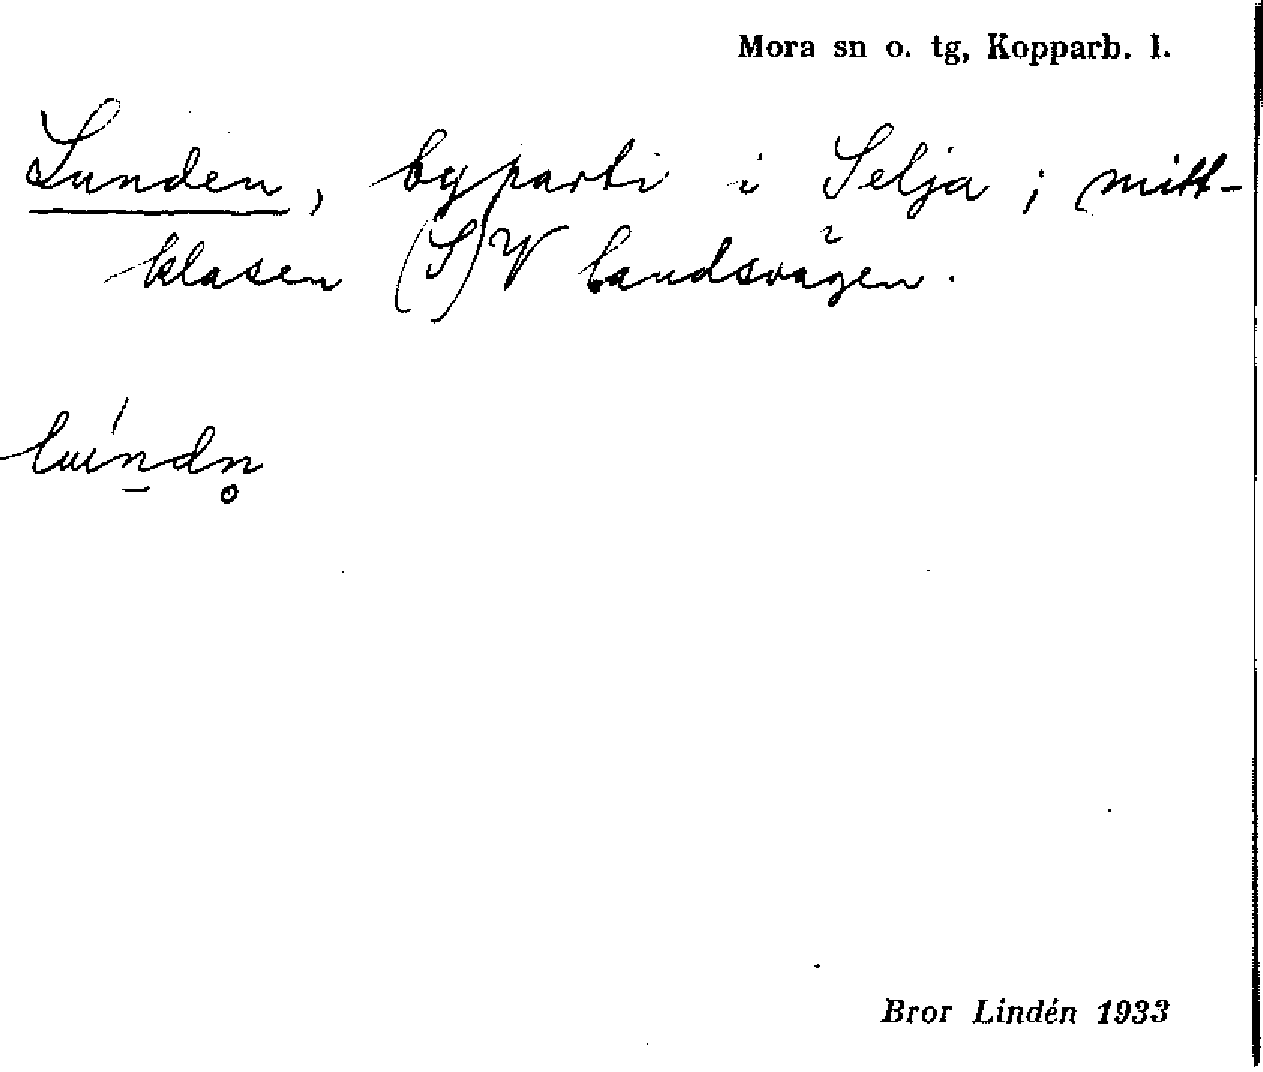 Mora sn o. tg, Kopparb. l.
Lunden, byparti i Selja; mitt-
klasen (S)V landsvägen.
luindn
Bror Lindén 1933